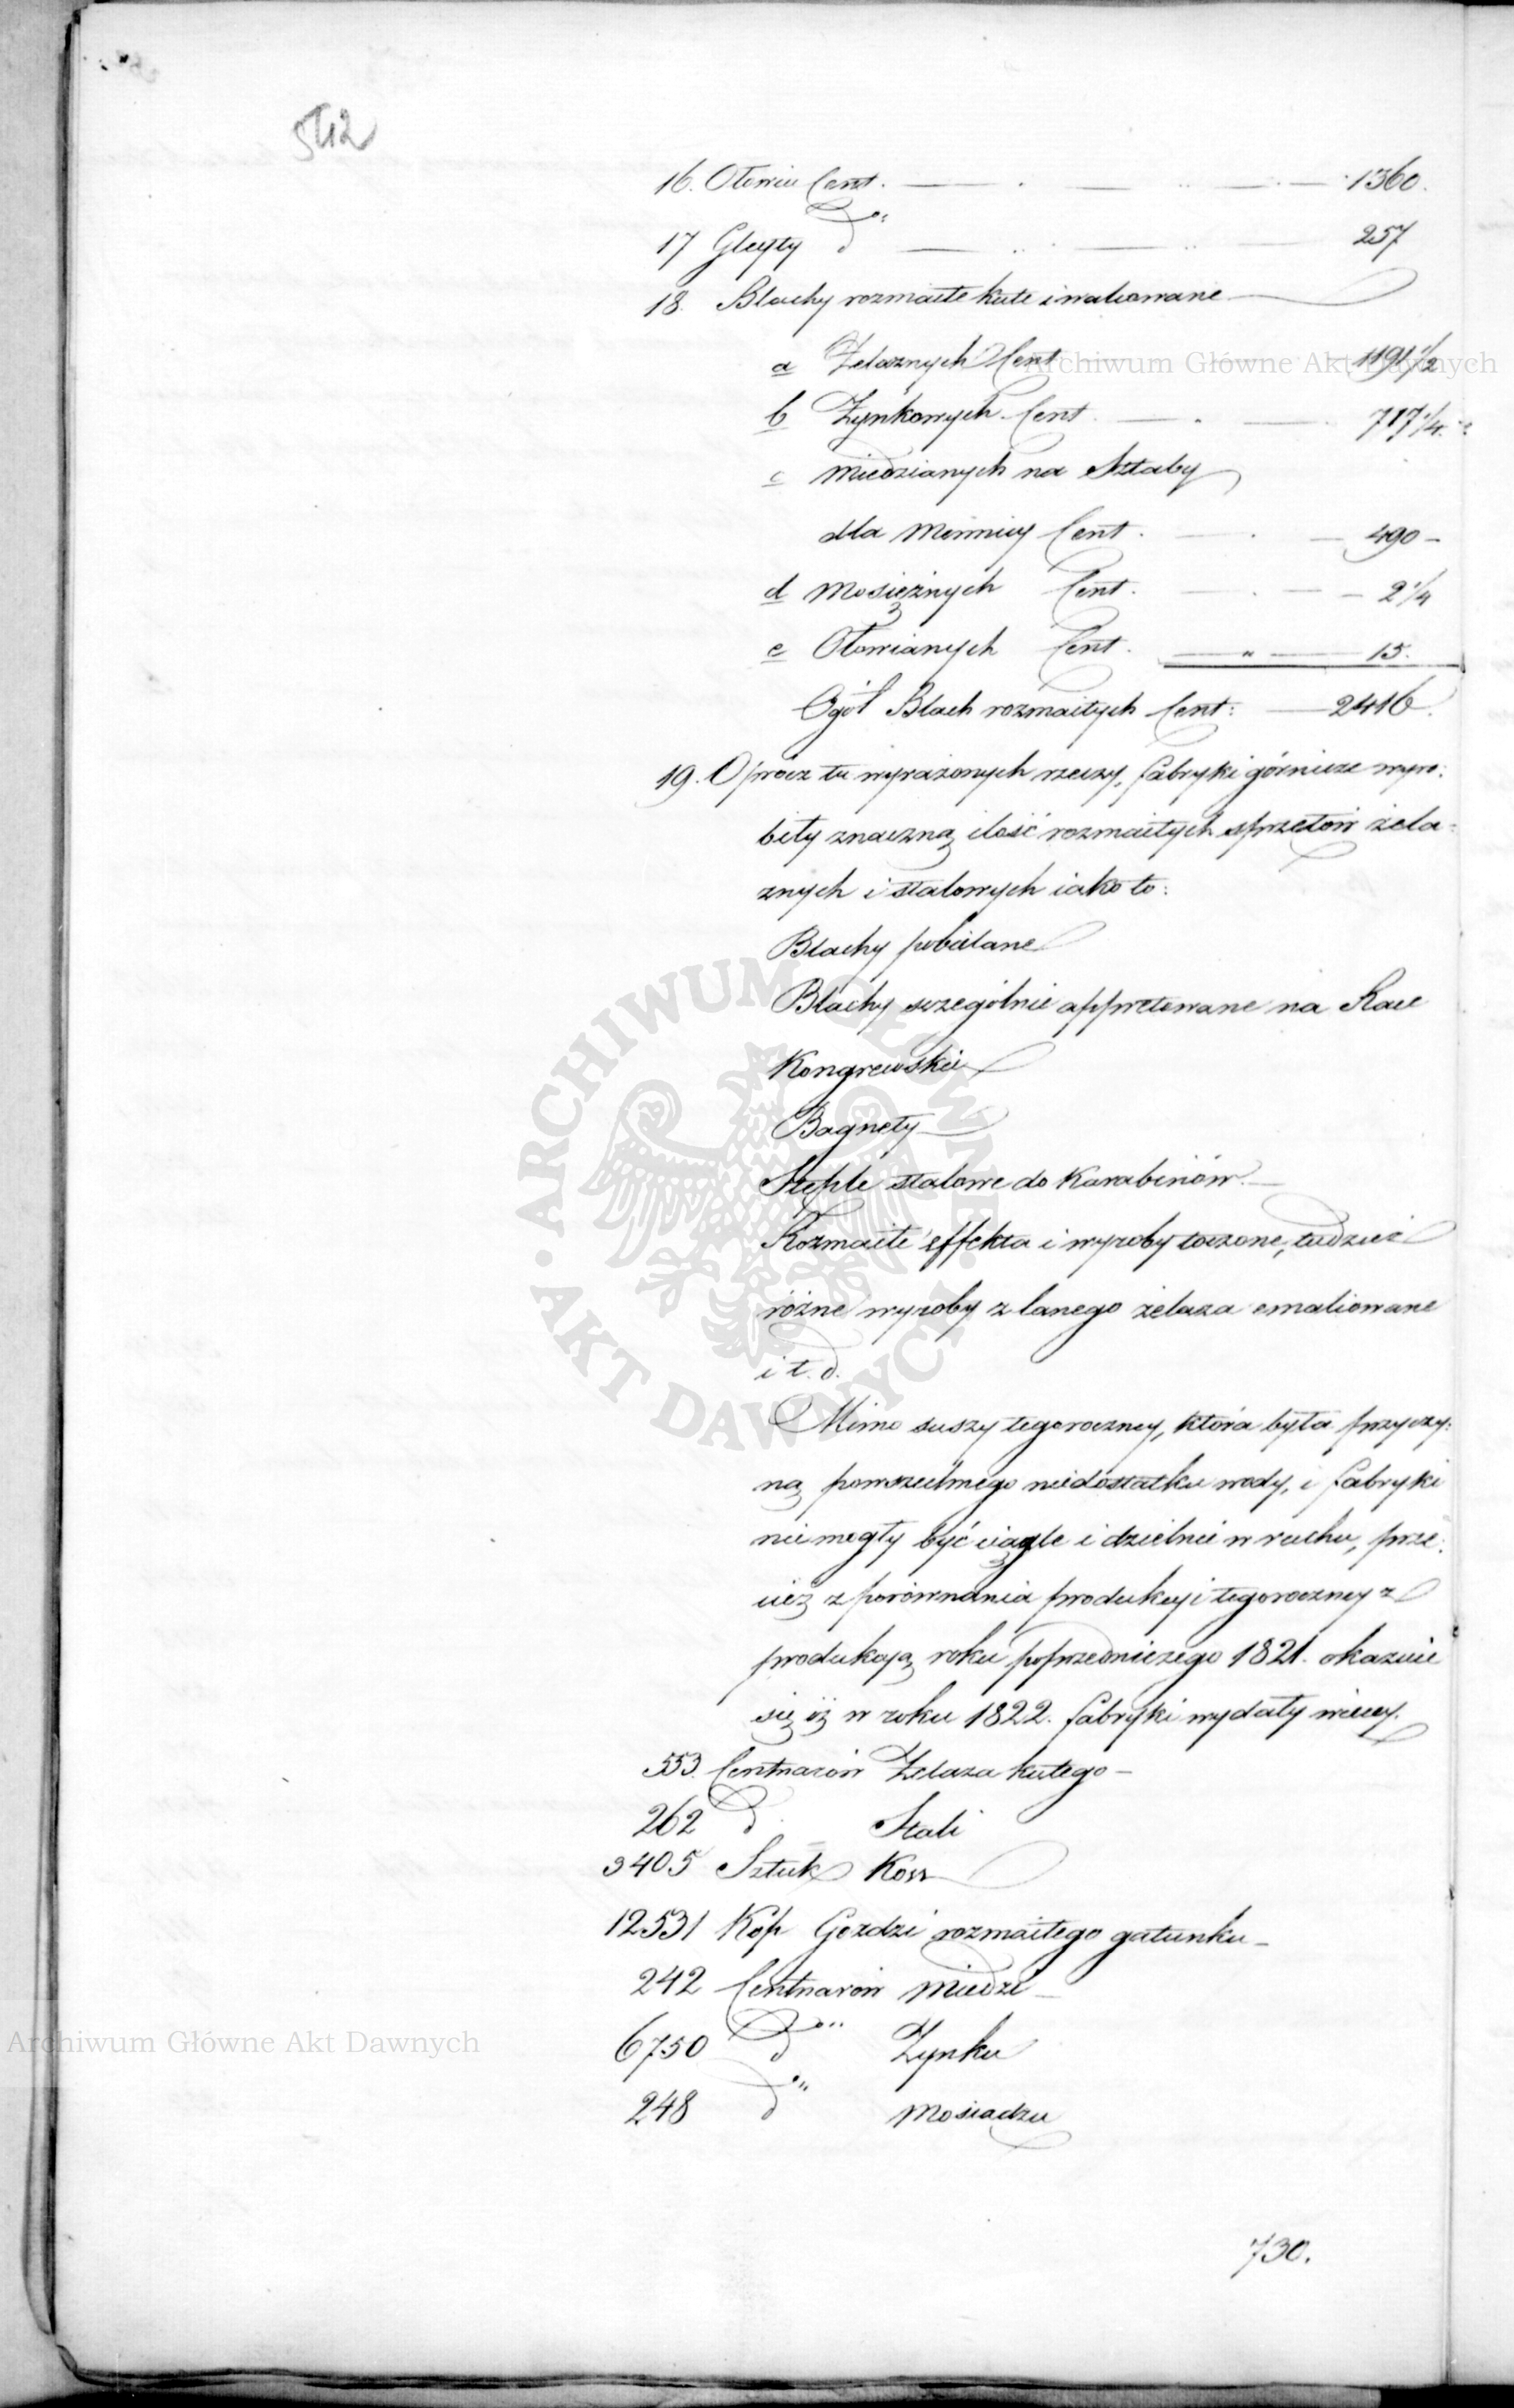 542
16. Ołowiu Cent. — 1360.
17 Gleyty do — 257
18. Blachy rozmaite kute i walcowane
a Żelaznych Cent — 1191 1/2
Archiwum Główne Akt Dawnych
b Zynkowych Cent. — 717 1/4
c Miedzianych na Sztaby
dla Mennicy Cent. — 490 —
d Mosiężnych Cent. — 2 1/4
e Ołowianych Cent. — 15.
Ogół Blach rozmaitych Cent: — 2416.
19. Oprocz tu wyrażonych rzeczy, fabryki górnicze wyro:
biły znaczną ilość rozmaitych sprzętów żela:
znych i stalowych iako to:
Blachy pobielane
Blachy szczególnie appretowane na Race
Kongrewskie
Bagnety
Stęple stalowe do Karabinów. —
Rozmaite effekta i wyroby toczone, tudzież
różne wyroby z lanego żelaza emaliowane
i t. d.
ARCHIWUM GŁÓWNE • AKT DAWNYCH •
Mimo suszy tegoroczney, która była przyczy:
ną powszechnego niedostatku wody, i fabryki
niemogły być ciągle i dzielnie w ruchu, prze:
cież z porównania produkcyi tegoroczney z
produkcją roku poprzedniczego 1821. okazuie
się iż w roku 1822. fabryki wydały więcey.
553. Centnarów Żelaza kutego —
262 d. Stali
3405 Sztuk Koss
12531 Kóp Gozdzi rozmaitego gatunku —
242 Centnarów Miedzi —
6750 do Zynku
Archiwum Główne Akt Dawnych
248 do Mosiadzu
730.